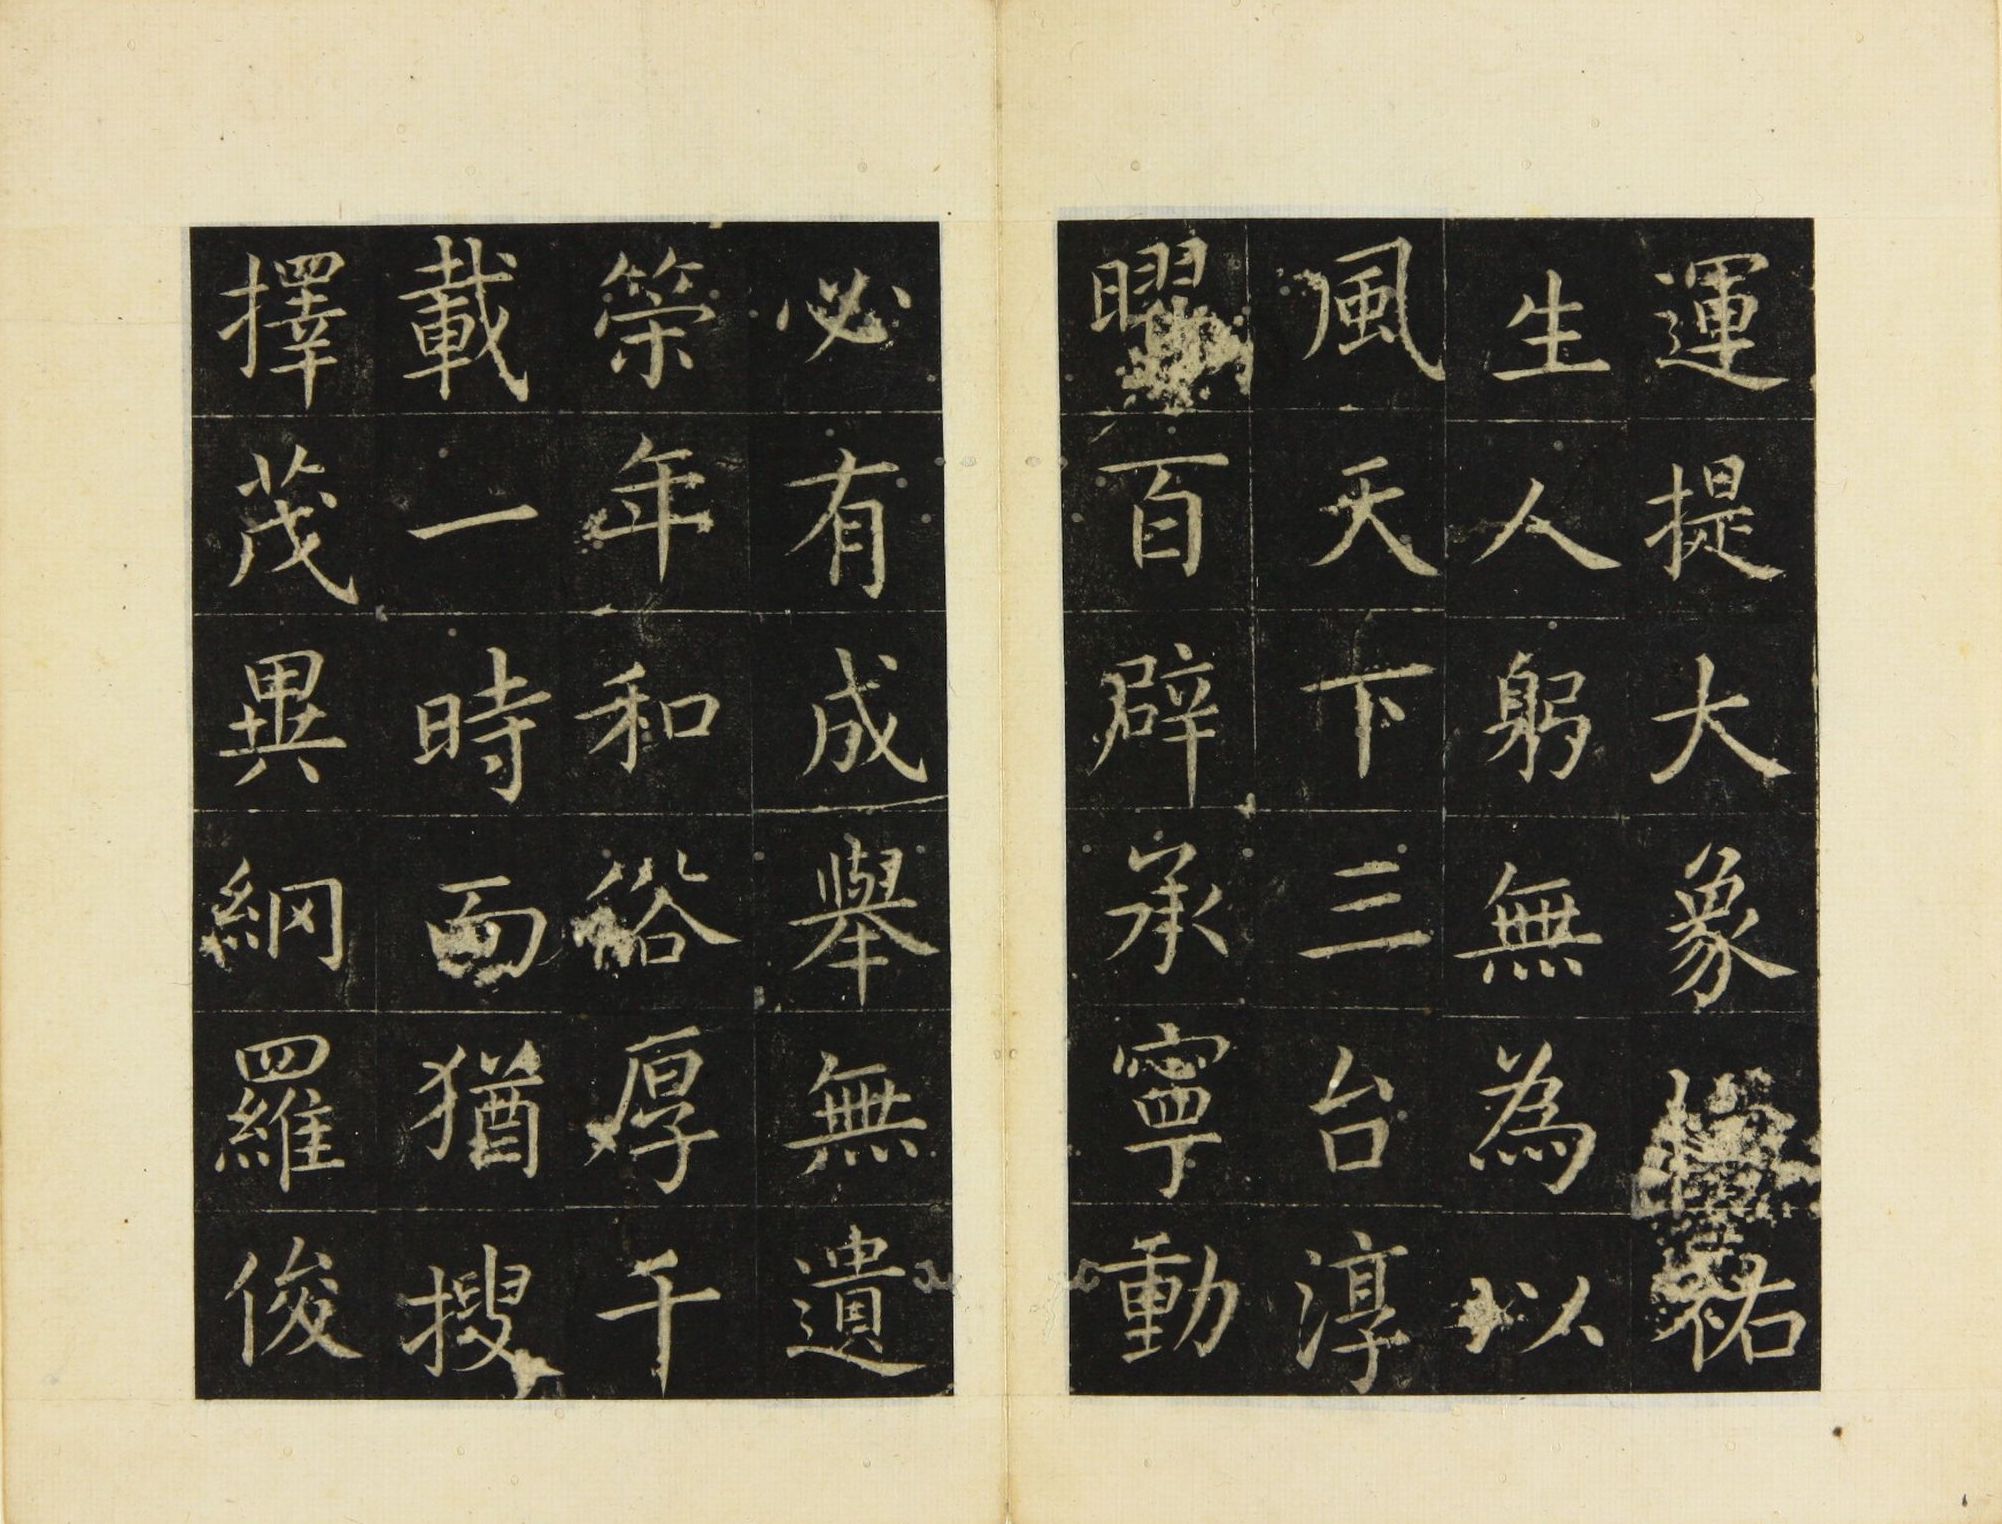 運提大象祐
生人躬無為以
風天下三台淳
曜百辟承寧動
必有成舉無遺
榮年和俗厚千
載一時而猶搜
擇茂異網羅俊